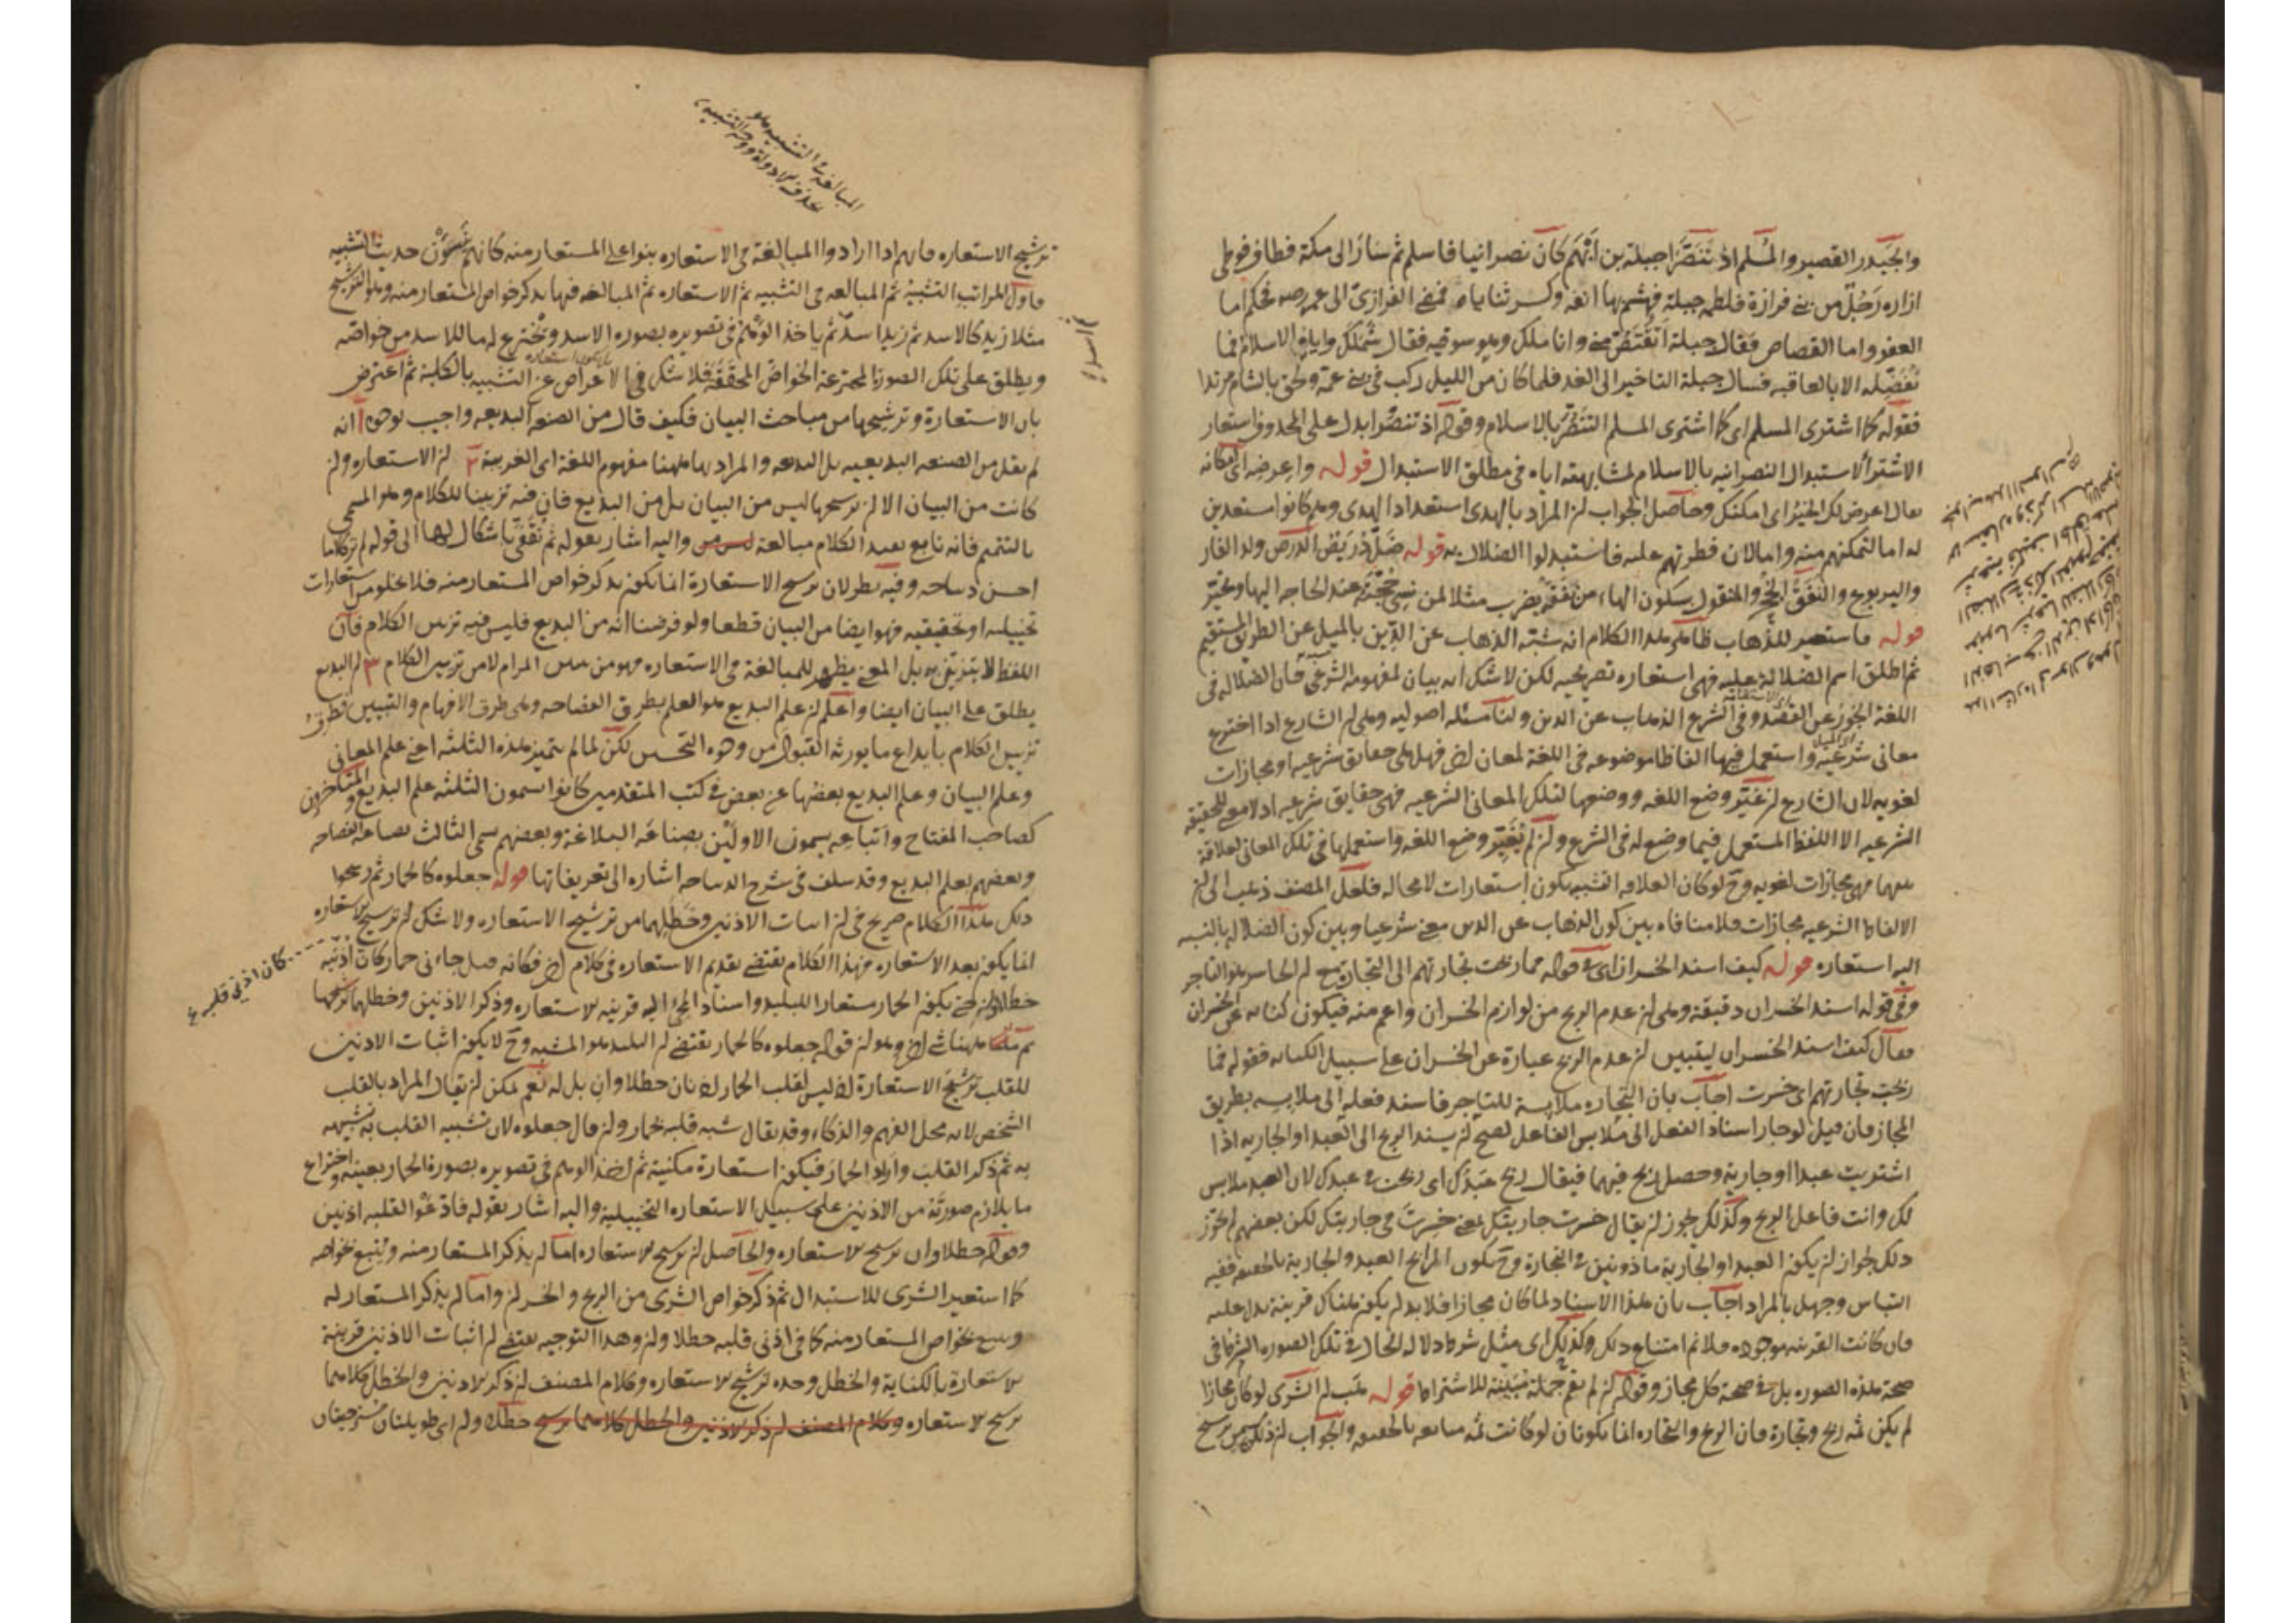 والجيدر القصير والمسلم اذ تنصرا جبلة بن ايهم كان نصرانيا فاسلم ثم سار الى مكة فطاف فوطى
ازاره رجل من بنى فزارة فلطمه جبلة فهشم بها انفه وكسر ثناياه فمضى الفزارى الى عمر رضه فحكم اما
العفو واما القصاص فقال جبلة اتقتص منى وانا ملك وهو سوقى فقال شملك واياه الاسلام فما
تفضله الا بالعاقبه فسال جبلة التاخير الى الغد فلما كان من الليل ركب فى بنى عمه ولحق بالشام مرتدا
فقوله كما اشترى المسلم اى كما اشترى المسلم التنصر بالاسلام وقوله اذ تنصرا بدل على المحذوف استعار
الاشتراء لاستبدال النصرانيه بالاسلام لمشابهته اياه فى مطلق الاستبدال قوله واعرضه اى
يقال اعرض لك الخير اى امكنك وحاصل الجواب لن المراد بالهدى استعداد الهدى وهم كانوا مستعدين
له اما لتمكنهم منه واما لان فطرتهم عليه فاستبدلوا الضلال به قوله ضل دريص نفقه الدرص ولد الفار
واليربوع والنفق الجحر والمنقول بسكون الهاء من نفقه يضرب مثلا لمن نسى حجته عند الحاجه اليها
قوله فاستعير للذهاب ظاهر هذا الكلام انه شبه الذهاب عن الدين بالميل عن الطريق المستقيم
ثم اطلق اسم الضلالة عليه فهى استعاره تصريحيه لكن لا شك انه بيان لمفهومه الشرعى فان الضلاله فى
اللغة الجور عن القصد وفى الشرع الذهاب عن الدين ولنا مسئله اصوليه وهى لن الشارع اذا اخترع
معانى شرعيه واستعمل فيها الفاظا موضوعه فى اللغة لمعان اخر فهل هى حقايق شرعيه او مجازات
لغويه لان الشارع لن غير وضع اللغه ووضعها لتلك المعانى الشرعيه فهى حقايق شرعيه اذ لا معنى للحقيقه
الشرعيه الا اللفظ المستعمل فيما وضع له فى الشرع ولن لم يغير وضع اللغه واستعملها فى تلك المعانى لعلاقة
بينهما فهى مجازات لغويه وح لو كان العلاقه التشبيه يكون استعارات لا محاله فلعل المصنف ذهب الى لن
الالفاظ الشرعيه مجازات فلا منافاه بين كون الذهاب عن الدين معنى شرعيا وبين كون الضلاله بالنسبه
اليه استعاره قوله كيف اسند الخسران اى فى قوله فما ربحت تجارتهم الى التجارة مع لن الخاسر هو التاجر
وفى قوله اسند الخسران دقيقة وهى لن عدم الربح من لوازم الخسران واعم منه فيكون كنايه عن الخسران
فقال كيف اسند الخسران ليتبين لن عدم الربح عبارة عن الخسران على سبيل الكنايه فقوله فما
ربحت تجارتهم اى خسرت اجاب بان التجاره ملابسة للتاجر فاسند فعله الى ملابسه بطريق
المجاز فان قيل لو جاز اسناد الفعل الى ملابس الفاعل لصح لن يسند الربح الى العبد او الجاريه اذا
اشتريت عبدا او جارية وحصل ربح فيهما فيقال ربح عبدك اى ربحت فى عبدك لان العبد ملابس
لك وانت فاعل الربح وكذلك يجوز لن يقال خسرت جاريتك بمعنى خسرت فى جاريتك لكن بعضهم لم يجوز
ذلك لجواز لن يكون العبد او الجارية ماذونين فى التجارة وح يكون الرابح العبد والجارية بالحقيقه ففيه
التباس وجهل بالمراد اجاب بان هذا الاسناد لما كان مجازا فلا بد لن يكون هناك قرينة يدل عليه
فان كانت القرينه موجوده فلا نم امتناع ذلك وكذلك اى مثل شرط دلاله الحال فى تلك الصوره الشرط فى
صحة هذه الصوره بل فى صحة كل مجاز وقوله لن لم يقم جملة مبينة للاشتراط قوله هب لن الشرى لو كان مجازا
لم يكن ثمه ربح وتجارة فان الربح والتجاره انما يكونان لو كانت ثمه مبايعه بالحقيقه والجواب لن ذلك من ترشيح
المبالغة فى التشبيه هو
حذف الاداة ووجه التشبيه
ترشيح الاستعاره فانهم اذا ارادوا المبالغة فى الاستعاره بنوا على المستعار منه كانهم ينسون حديث التشبيه
فاول المراتب التشبيه ثم المبالغه فى التشبيه ثم الاستعاره ثم المبالغه فيها بذكر خواص المستعار منه وهو الترشيح
مثلا زيد كالاسد ثم زيد اسد ثم ياخذ الوهم فى تصويره بصوره الاسد ويخترع له ما للاسد من خواصه
ويطلق على تلك الصورة المخترعة الخواص المحققة فلا شك فى الاعراض عن التشبيه بالكلية ثم اعترض
بان الاستعارة وترشيحها من مباحث البيان فكيف قال من الصنعه البديعه واجيب بوجوه ا انه
لم يقل من الصنعه البديعيه بل البديعه والمراد بها ههنا مفهوم اللغة اى الغريبة ٢ لن الاستعاره ولن
كانت من البيان الا لن ترشيحها ليس من البيان بل من البديع فان فيه تزيينا للكلام وهو المسمى
بالتتميم فانه تابع يفيد الكلام مبالغة واليه اشار بقوله ثم تقفى باشكال لها الى قوله لم تر كلاما
احسن ديباجه وفيه نظر لان ترشيح الاستعارة انما يكون بذكر خواص المستعار منه فلا يخلو من استعارات
تخييليه او تحقيقيه فهو ايضا من البيان قطعا ولو فرضنا انه من البديع فليس فيه تزيين الكلام فان
اللفظ لا يتزين به بل المعنى يظهر للمبالغة فى الاستعاره فهو من المرام لا من تزيين الكلام ٣ لن البديع
يطلق على البيان ايضا واعلم لن علم البديع هو العلم بطرق الفصاحه وهى طرق الافهام والتبيين
تزيين الكلام بايداع ما يورثه القبول من وجوه التحسين لكن لما لم يتميز هذه الثلثه اعنى علم المعانى
وعلم البيان وعلم البديع بعضها عن بعض فى كتب المتقدمين كانوا يسمون الثلثه علم البديع والمتاخرون
كصاحب المفتاح واتباعه يسمون الاولين بصناعة البلاغة وبعضهم سمى الثالث بصناعه الفصاحه
وبعضهم بعلم البديع وقد سلف فى شرح الديباجه اشاره الى تعريفاتها قوله جعلوه كالحمار ثم رشحوا
ذلك هذا الكلام صريح فى لن اثبات الاذنين وخطلهما من ترشيح الاستعاره ولا شك لن ترشيح الاستعاره
انما يكون بعد الاستعاره فهذا الكلام يقتضى تقديم الاستعاره فى كلام اخر فكانه قيل جاءنى حمار كان اذنيه
خطلاوان حتى يكون الحمار مستعارا للبليد واسناد المجئ اليه قرينه الاستعاره وذكر الاذنين وخطلهما ترشيحا
كان اذنى قلبه
ثم ههنا شئ اخر وهو لن قوله جعلوه كالحمار يقتضى لن البليد هو المشبه وح لا يكون اثبات الاذنين
للقلب ترشيح الاستعارة اذ ليس لقلب الحمار اذنان خطلاوان بل له نعم يمكن لن يقال المراد بالقلب
الشخص لانه محل الفهم والذكاء وقد يقال شبه قلبه بحمار ولن قال جعلوه لان تشبيه القلب به تشبيهه
به ثم ذكر القلب واراد الحمار فيكون استعارة مكنية ثم اخذ الوهم فى تصويره بصورة الحمار بعينه واختراع
ما يلازم صورته من الاذنين على سبيل الاستعاره التخييلية واليه اشار بقوله فادعوا لقلبه اذنين
وقوله خطلاوان ترشيح الاستعاره والحاصل لن ترشيح الاستعاره اما لن يذكر المستعار منه ويتبع بخواصه
كما استعير الشرى للاستبدال ثم ذكر خواص الشرى من الربح والخسران واما لن يذكر المستعار له
ويتبع بخواص المستعار منه كما فى اذنى قلبه خطلا ولن وهذا التوجيه يقتضى لن اثبات الاذنين قرينة
الاستعارة بالكناية والخطل وحده ترشيح الاستعاره وكلام المصنف لن ذكر الاذنين والخطل كلاهما
ترشيح الاستعاره وكلام المصنف لن ذكر الاذنين والخطل كلاهما ترشيح خطلاوان اى طويلتان مسترخيتان